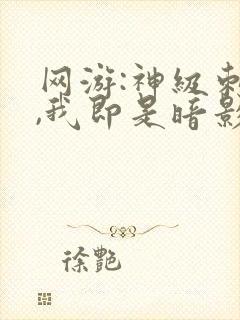 网游:神级刺
,我即是暗影
徐艷